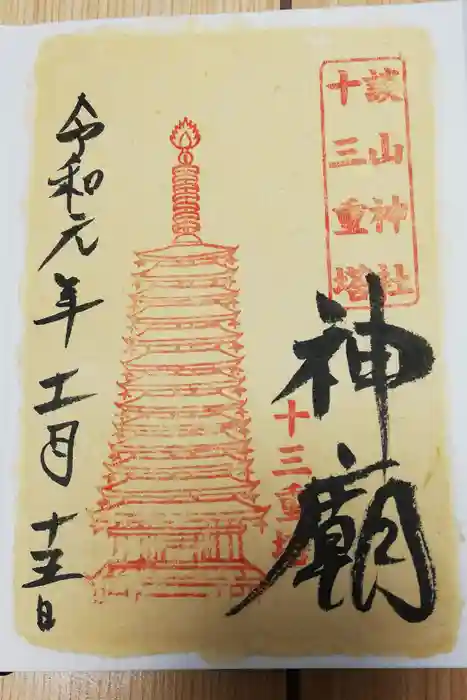 談山神社
十三重塔
神廟
十三重塔
令和元年十一月十五日